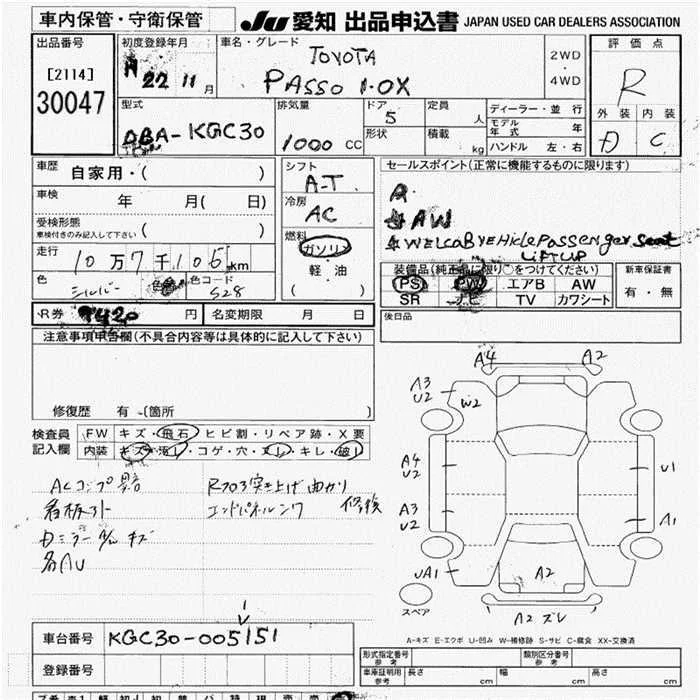 車内保管・守衛保管
JU 愛知 出品申込書 JAPAN USED CAR DEALERS ASSOCIATION
出品番号
[2114]
30047
初度登録年月
H 22 11 月
車名・グレード
TOYOTA
PASSO 1.0X
2WD
・
4WD
評価点
R
外装 内装
D C
型式
DBA-KGC30
排気量
1000 CC
ドア
5
形状
定員 人
積載 kg
ディーラー・並行
モデル年式 年
ハンドル 左・右
車歴 自家用・( )
車検 年 月( 日)
受検形態
車検付きのみ記入して下さい ( )
走行
10万7千,106 km
色
シルバー
色コード
S28
シフト
A-T
冷房
AC
燃料
ガソリン
軽・油
( )
セールスポイント(正常に機能するものに限ります)
A
AW
WELCAB VEHicle Passenger seat
LiFT UP
装備品(純正品に限り○をつけてください)
PS PW エアB AW
SR ナビ TV カワシート
新車保証書
有・無
R券 9420 円
名変期限 月 日
後日品
注意事項申告欄(不具合内容等は具体的に記入して下さい)
修復歴 有(箇所 )
検査員記入欄
FW キズ・飛石・ヒビ割・リペア跡・X要
内装 キズ・汚レ・コゲ・穴・スレ・キレ・破レ
ACコンプ異音
看板外ト
キズ
各AU
突き上げ曲がり
エンドパネル
修復
A4 A2
A3
U2
W2
A4
U2
U1
A3
U2
A1
UA1
A2
スペア
A2 ズレ
A-キズ E-エクボ U-凹み W-補修跡 S-サビ C-腐食 XX-交換済
1
車台番号 KGC30-005151
登録番号
形式指定番号
参考
類別区分番号
参考
車庫証明用
参考
長さ cm 幅 cm 高さ cm